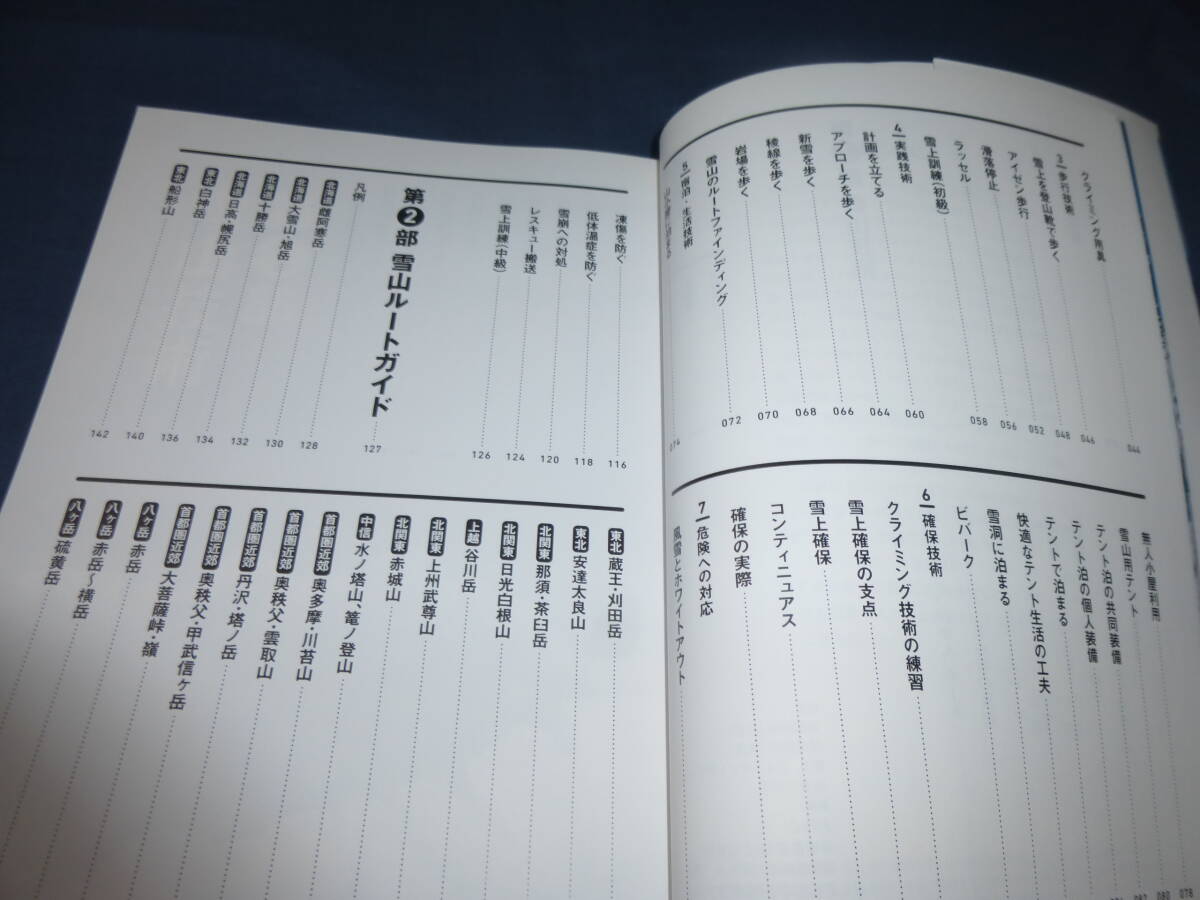 クライミング用具 044
3 歩行技術 046
雪上を登山靴で歩く 048
アイゼン歩行 052
滑落停止 056
ラッセル 058
雪上訓練(初級) 060
4 実践技術
計画を立てる 064
アプローチを歩く 066
新雪を歩く 068
稜線を歩く 070
岩場を歩く 072
雪山のルートファインディング
5 宿泊・生活技術
074
無人小屋利用 078
雪山用テント 080
テント泊の共同装備 082
テント泊の個人装備
テントで泊まる
快適なテント生活の工夫
雪洞に泊まる
ビバーク
6 確保技術
クライミング技術の練習
雪上確保の支点
雪上確保
コンティニュアス
確保の実際
7 危険への対応
風雪とホワイトアウト
凍傷を防ぐ 116
低体温症を防ぐ 118
雪崩への対処 120
レスキュー搬送 124
雪上訓練(中級) 126
第2部 雪山ルートガイド 127
凡例
北海道 雌阿寒岳 128
北海道 大雪山・旭岳 130
北海道 十勝岳 132
北海道 日高・幌尻岳 134
東北 白神岳 136
東北 船形山 140
142
東北 蔵王・刈田岳
東北 安達太良山
北関東 那須・茶臼岳
北関東 日光白根山
上越 谷川岳
北関東 上州武尊山
北関東 赤城山
中信 水ノ塔山、篭ノ登山
首都圏近郊 奥多摩・川苔山
首都圏近郊 奥秩父・雲取山
首都圏近郊 丹沢・塔ノ岳
首都圏近郊 奥秩父・甲武信ヶ岳
首都圏近郊 大菩薩峠・嶺
八ヶ岳 赤岳
八ヶ岳 赤岳〜横岳
八ヶ岳 硫黄岳